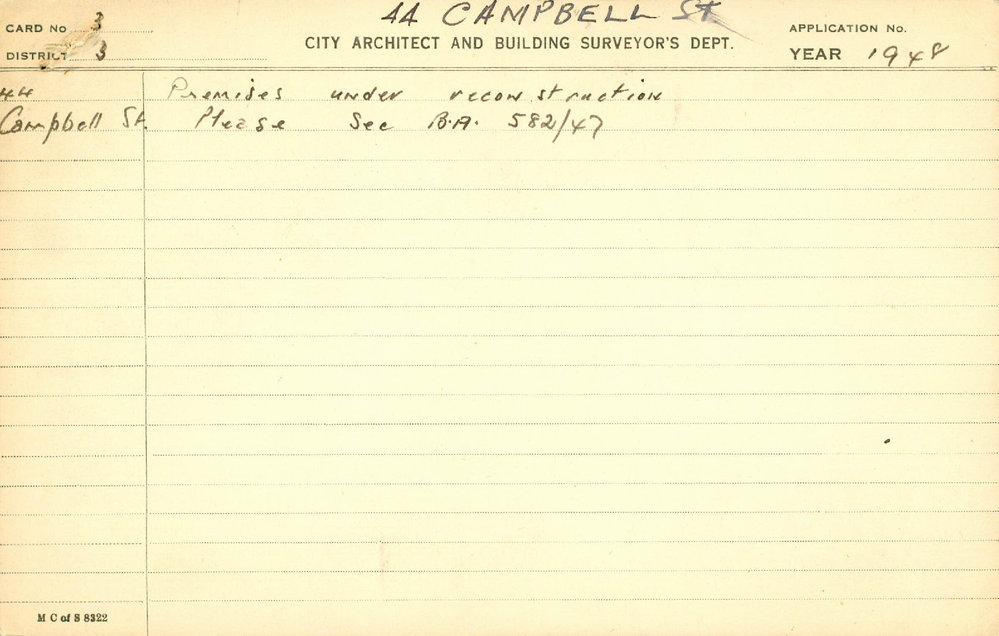 44 CAMPBELL St
CARD No 3
APPLICATION No.
CITY ARCHITECT AND BUILDING SURVEYOR'S DEPT.
DISTRICT 3
YEAR 1948
44 Premises under reconstruction
Campbell St. Please See B.A. 582/47
M C of S 8322